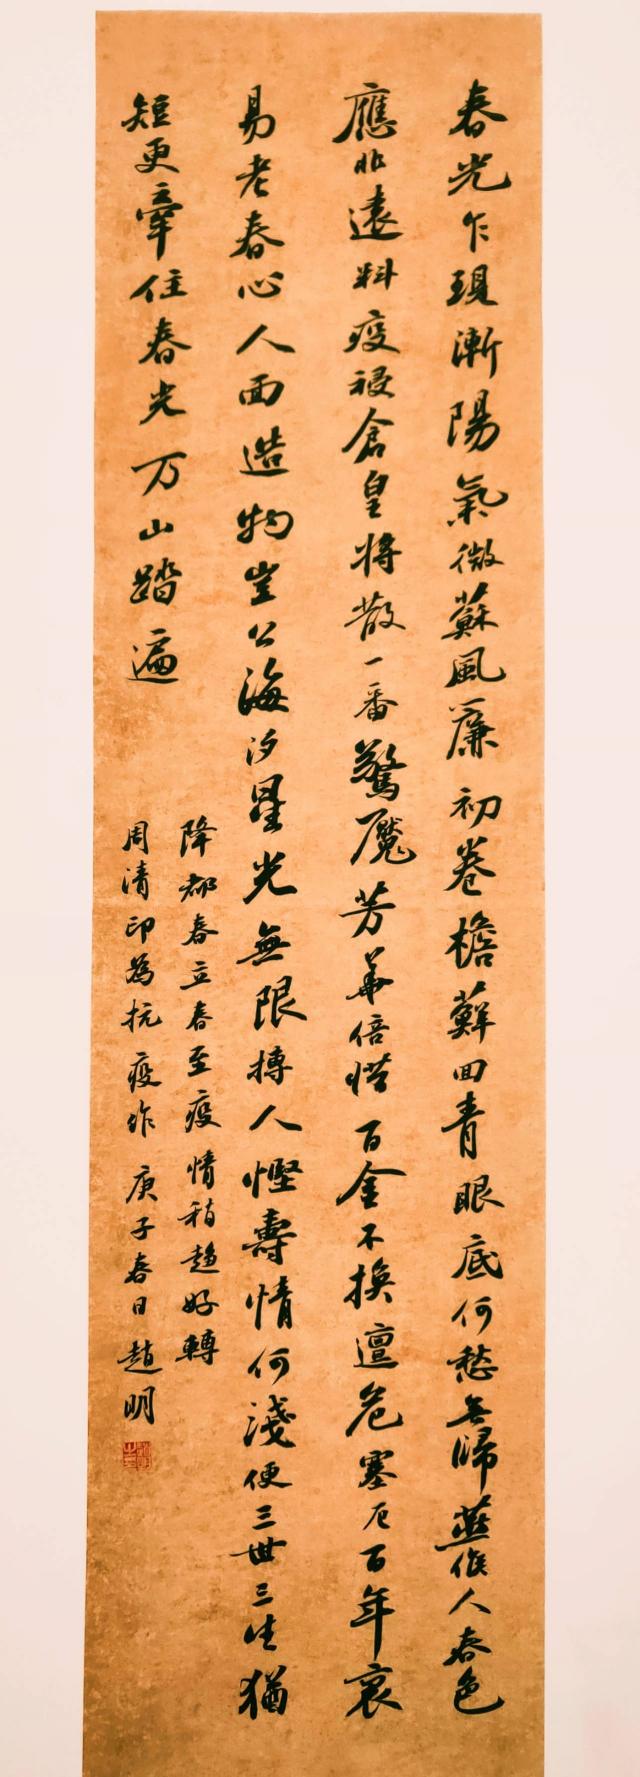 春光乍現漸陽氣微蘇風簾初卷檐蘚回青眼底何愁無歸燕候人春色
應非遠料疫祲倉皇將散一番驚魘芳華倍惜百金不換邅危塞厄百年裏
易老春心人面造物豈公海汐星光無限摶人慳壽情何淺便三世三生猶
短更牽住春光万山踏遍
降都春立春至疫情稍趨好轉
周清印為抗疫作庚子春日趙明